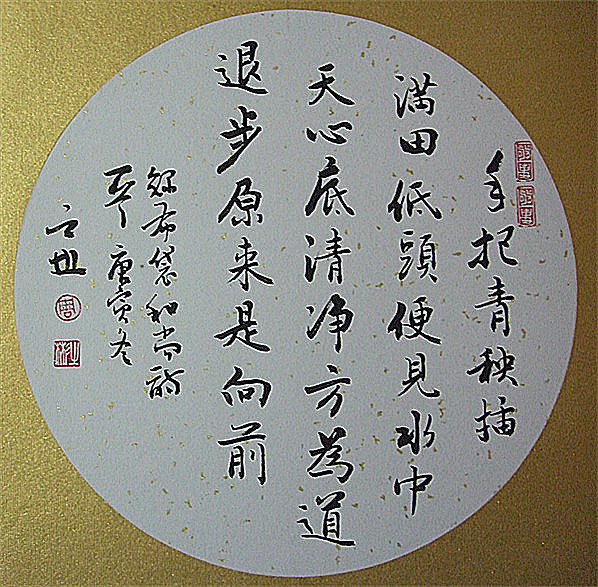 手把青秧插
満田低頭便見水中
天心底清净方為道
退步原来是向前
布袋和尚詩
庚寅冬